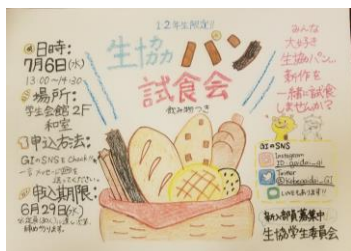 1・2年生限定!!
生協パン
試食会
飲み物つき
日時:
7月6日(水)
13:00〜14:30
場所:
学生会館2F
和室
申込方法:
GIのSNSをCheck!!
申込期限:
6月29日(水)
みんな
大好き
生協パン。
新作を
一緒に試食
しませんか?
GIのSNS
Instagram
Twitter
部員募集中
生協学生委員会